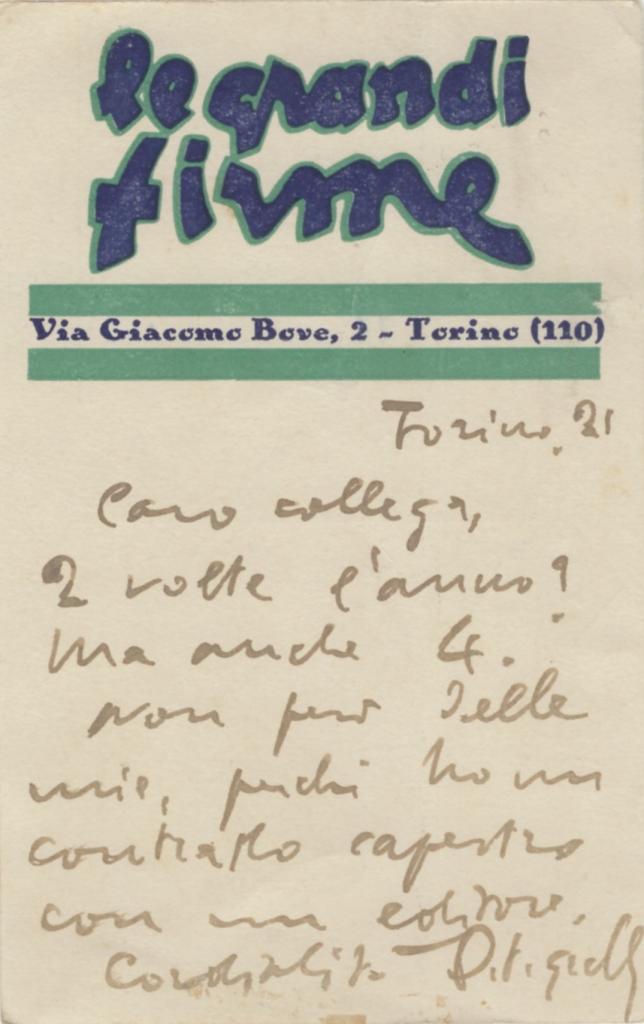 le grandi
firme
Via Giacomo Bove, 2 - Torino (110)
Torino, 21
Caro collega,
2 volte l'anno?
Ma anche 4.
Non però delle
mie, perchè ho un
contratto capestro
con un editore.
Cordialità Pitigrilli